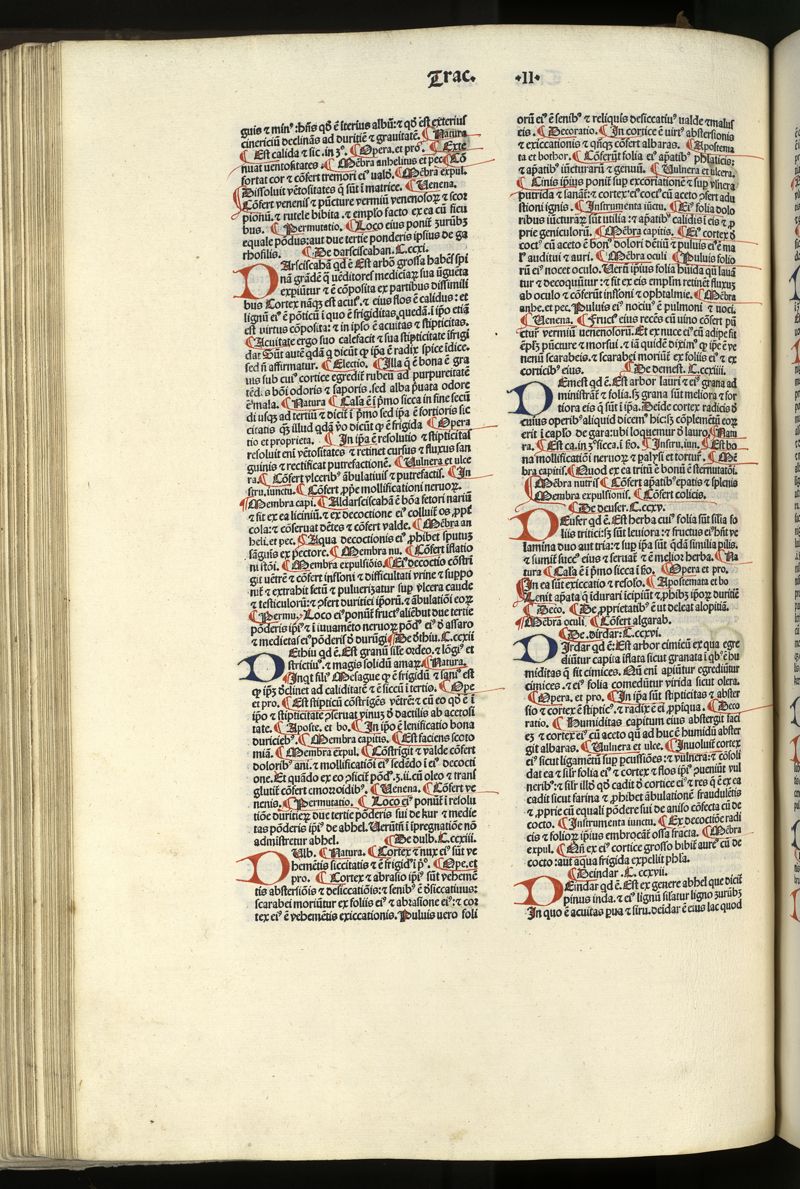 Trac. .II.
guis et minꝰ: hn̄s qd̄ ē īteriꝰ albū: et qd̄ est exterius
cinericiū declinās ad duritiē et grauitatē. ¶ Natura
¶ Est calida et sic. in .3°. ¶ Opera. et pro. ¶ Exte
nuat uentositates. ¶ Mēbra anhelitus et pec. ¶ Cō
fortat cor et cōfert tremori eiꝰ ualde. ¶ Mēbra expul.
¶ Dissoluit vētositates q̄ sūt ī matrice. ¶ Venena.
¶ Cōfert venenis et pūcture vermiū venenosoꝝ et scor
pionū. et rutele bibita. et emplo facto ex ea cū ficu
bus. ¶ Permutatio. ¶ Loco eius ponit̄ zurūbꝫ
equale pōdus: aut due tertie ponderis ipsius de ga
rhofilis. ¶ De darsciscahan. C. ccxxi.
DArsciscahā qd̄ ē Est arbor grossa habēs spi
nā grādē q̄ uēditores mediciaꝝ sua ūguēta
expiūtur et ē cōposita ex partibus dissimili
bus Cortex nāqꝫ est acutꝰ. et eius flos ē calidus: et
lignū eiꝰ ē pōticū ī quo ē frigiditas quedā. ī ipo etiā
est virtus cōposita: et in ipso ē acuitas et stipticitas.
¶ Acuitate ergo suo calefacit et sua stipticitate īfrigi
dat Sūt autē qdā q̄ dicūt ꝙ ipa ē radix spice īdice.
sed nō affirmatur. ¶ Electio. ¶ Illa q̄ ē bona ē gra
uis sub cuiꝰ cortice egredit̄ rubeū ad purpureitatē
tēdēs bōi odoris et saporis. sed alba priuata odore
ē mala. ¶ Natura ¶ Cafa ē ī pmo sicca in fine secū
di usqꝫ ad tertiū et dicit̄ ī pmo sed ipa ē fortioris sic
citatis qꝫ illud qdā vo dicūt ꝙ ē frigida ¶ Opera
tio et proprieta. ¶ In ipa ē resolutio et stipticitas
resoluit eni vētositates et retinet cursus et fluxus san
guinis et rectificat putrefactionē. ¶ Vulnera et ulce
ra. ¶ Cōfert ylceribꝰ ābulatiuis et putrefactis. ¶ In
stru. iunctu. ¶ Cōfert ppe mollificationi neruoꝝ.
¶ Mēbra capi. ¶ Aldarsciscahā ē bōa fetori nariū
et fit ex ea liciniū. et ex decoctione eiꝰ colluit̄ os. ppt̄
cola: et cōseruat dētes et cōfert valde. ¶ Mēbra an
heli. et pec. ¶ Aqua decoctionis eiꝰ phibet sputuꝫ
sāguis ex pectore. ¶ Mēbra nu. ¶ Cōfert īflatio
ni stōi. ¶ Mēbra expulsiōis ¶ Ei decoctio cōstri
git uētrē et cōfert inflōni et difficultati yrine et suppo
nit̄ et extrahit fetū et pulueri​zatur sup ylcera caude
et testiculoꝝ: et cōfert duritiei ipōrū. et ābulatiōi eoꝝ
¶ Permu. ¶ Loco eiꝰ ponūt fructꝰ alicbut due tertie
pōderis ipiꝰ et ī iuuamēto neruoꝝ pōdꝰ eiꝰ d̄ assaro
et medietas eiꝰ pōderis d̄ durūgi ¶ De dōhiu. C. ccxxii
DEihiu qd̄ ē. Est granū sile ordeo. et lōgiꝰ et
strictiuꝰ. et magis solidū amaꝝ. ¶ Natura.
¶ Inqt filiꝰ Mesague ꝙ ē frigidū et sani est
ꝙ ipꝫ declinet ad caliditatē et ē siccū ī tertio. ¶ Ope
et pro. ¶ Est stipticū cōstrīgēs vētrē: et cū eo qd̄ ē ī
ipo et stipticitate cōseruat vinuꝫ d̄ dactilis ab acetosi
tate. ¶ Aposte. et bo. ¶ In ipo ē lenificatio bona
duricieꝫ. ¶ Membra capitis. ¶ Est faciens scoto
miā. ¶ Membra expul. ¶ Cōstrīgit et valde cōfert
doloribꝰ ani. et mollificatiōi eiꝰ sedēdo ī eiꝰ decocti
one. Et quādo ex eo cōficit̄ pōdꝰ .ʒ.ii. cū oleo et trans
glutit̄ cōfert emoroidibꝰ. ¶ Venena. ¶ Cōfert ve
nenis. ¶ Permutatio. ¶ Loco eiꝰ ponūt ī resolu
tiōe duritieꝫ due tertie pōderis sui de kur et medie
tas pōderis ipiꝰ de abhel. Verūtn̄ ī ipregnatiōe nō
admiscetur abhel. ¶ De dulb. C. ccxxiii.
DVlb. ¶ Natura. ¶ Cortex et nux eiꝰ sūt ve
hemētis siccitatis et ē frigidꝰ ī pº. ¶ Ope. et
pro. ¶ Cortex et abrasio ipiꝰ sūt vehemē
tis abstersiōis et desiccatiōis: et senibꝰ ē d̄siccatiuus:
scarabei moriūtur ex foliis eiꝰ et abrasione eiꝰ: et cor
tex eiꝰ ē vehemētis exiccationis. Puluis uero foli
orū eiꝰ ē senibꝰ et reliquis desiccatiuꝰ ualde et malus
eis. ¶ Decoratio. ¶ In cortice ē uirtꝰ abstersionis
et exiccationis et qñqꝫ cōfert albaras. ¶ Apostema
ta et bothor. ¶ Cōferūt folia eiꝰ apatibꝰ phlaticis:
et apatibꝰ iūcturarū et genuū. ¶ Vulnera et ulcera.
¶ Cinis ipius ponit̄ sup excoriationē et sup vlnera
putrida et sanat: et cortex eiꝰ coctꝰ cū aceto cōfert adu
stioni ignis. ¶ Instrumenta iūctu. ¶ Eiꝰ folia dolo
ribus iūcturaꝝ sūt utilia: et apatibꝰ calidis ī eis et p
prie geniculorū. ¶ Mēbra capitis. ¶ Eiꝰ cortex d̄
coctꝰ cū aceto ē bonꝰ dolori dētiū et puluis eiꝰ ē ma
lꝰ auditui et auri. ¶ Mēbra oculi ¶ Puluis folio
rū eiꝰ nocet oculo. Verū ipius folia huida qū lauā
tur et decoquūtur: et fit ex eis emplm̄ retinet fluxuꝫ
ab oculo et cōferūt inflōni et ophtalmie. ¶ Mēbra
anhe. et pec. Puluis eiꝰ nociuꝰ ē pulmoni et uoci.
¶ Venena. ¶ Fructꝰ eius recēs cū uino cōfert pū
cture vermiū uenenosorū. Et ex nuce eiꝰ cū adipe fit
emplꝫ pūcture et morsui. et iā quidē diximꝰ ꝙ ipe ē ve
nenū scarabeis. et scarabei moriūt ex foliis eiꝰ et ex
corticibꝰ eius. ¶ De demest. C. ccxxiiii.
DEmest qd̄ ē. Est arbor lauri et eiꝰ grana ad
ministrāt̄ et folia. sꝫ grana sūt meliora et for
tiora eis q̄ sūt ī ipa. Deide cortex radicis d̄
cuius operibꝰ aliquid dicemꝰ hic: sꝫ cōplemētū eoꝝ
erit ī caplo de gara: ubi loquemur d̄ lauro. ¶ Natu
ra. ¶ Est ca. in .3°. sicca ī. scdo. ¶ Instru. iun. ¶ Est bo
na mollificatiōi neruoꝝ et palysi et torturꝰ. ¶ Mē
bra capitis. ¶ Quod ex ea tritū ē bonū ē sternutatōi.
¶ Mēbra nutris ¶ Cōfert apatibꝰ epatis et splenis
¶ Membra expulsionis. ¶ Cōfert colicis.
¶ De deuser. C. ccxxv.
DEuser qd̄ ē. Est herba cuiꝰ folia sūt silia fo
liis tritici: sꝫ sūt leuiora: et fructus eiꝰ hn̄t ve
lamina duo aut tria: et sup ipa sūt qdā similia pilis.
et sumit̄ succꝰ eius et seruat̄ et ē melio herba. ¶ Na
tura ¶ Cafa ē ī pmo sicca ī scdo. ¶ Opera et pro.
¶ In ea sūt exiccatio et resolo. ¶ Apostemata et bo
¶ Lenit apata q̄ idurari icipiūt et phibꝫ ipoꝝ duritiē
¶ Deco. ¶ De pprietatibꝰ ē ut deleat alopitiā.
¶ Mēbra oculi ¶ Cōfert algarab.
¶ De .dirdar: C. ccxxvi.
DIrdar qd̄ ē: Est arbor cimicū ex qua egre
diūtur capita īflata sicut granata ī qbꝰ ē hu
miditas q̄ fit cimices. Qn̄ eni apiūtur egrediūtur
cimices. et eiꝰ folia comedūtur virida sicut olera.
¶ Opera. et pro. ¶ In ipa sūt stipticitas et abster
sio et cortex ē stipticꝰ. et radix ē ei ppīqua. ¶ Deco
ratio. ¶ Humiditas capitum eius abstergit faci
eꝫ et cortex eiꝰ cū aceto qn̄ ad huc ē humidꝰ abster
git albaras. ¶ Vulnera et ulce. ¶ Inuoluit̄ cortex
eiꝰ sicut ligamētū sup pcussiōes: et vulnera: et cōsoli
dat ea et silr folia eiꝰ et cortex et flos ipiꝰ cōueniūt vul
neribꝰ: et silr illd̄ qd̄ cadit d̄ cortice eiꝰ et res q̄ ē ex ea
cadit sicut farina et phibet ābulationē fraudulētis
et pprie cū equali pōdere sui de aniso cōfecta cū de
cocto. ¶ Instrumenta iunctu. ¶ Ex decoctiōe radi
cis et folioꝝ ipius embrocāt̄ ossa fracta. ¶ Mēbra
expul. ¶ Qn̄ ex eiꝰ cortice grosso bibit̄ aureꝰ cū de
cocto: aut aqua frigida expellit phla.
¶ Deindar. C. ccxxvii.
DEindar qd̄ ē. Est ex genere abhel que dicit̄
pinus inda. et eiꝰ lignū sīlatur ligno zurūbꝫ
In quo ē acuitas pua et siru. deidar ē eius lac quod